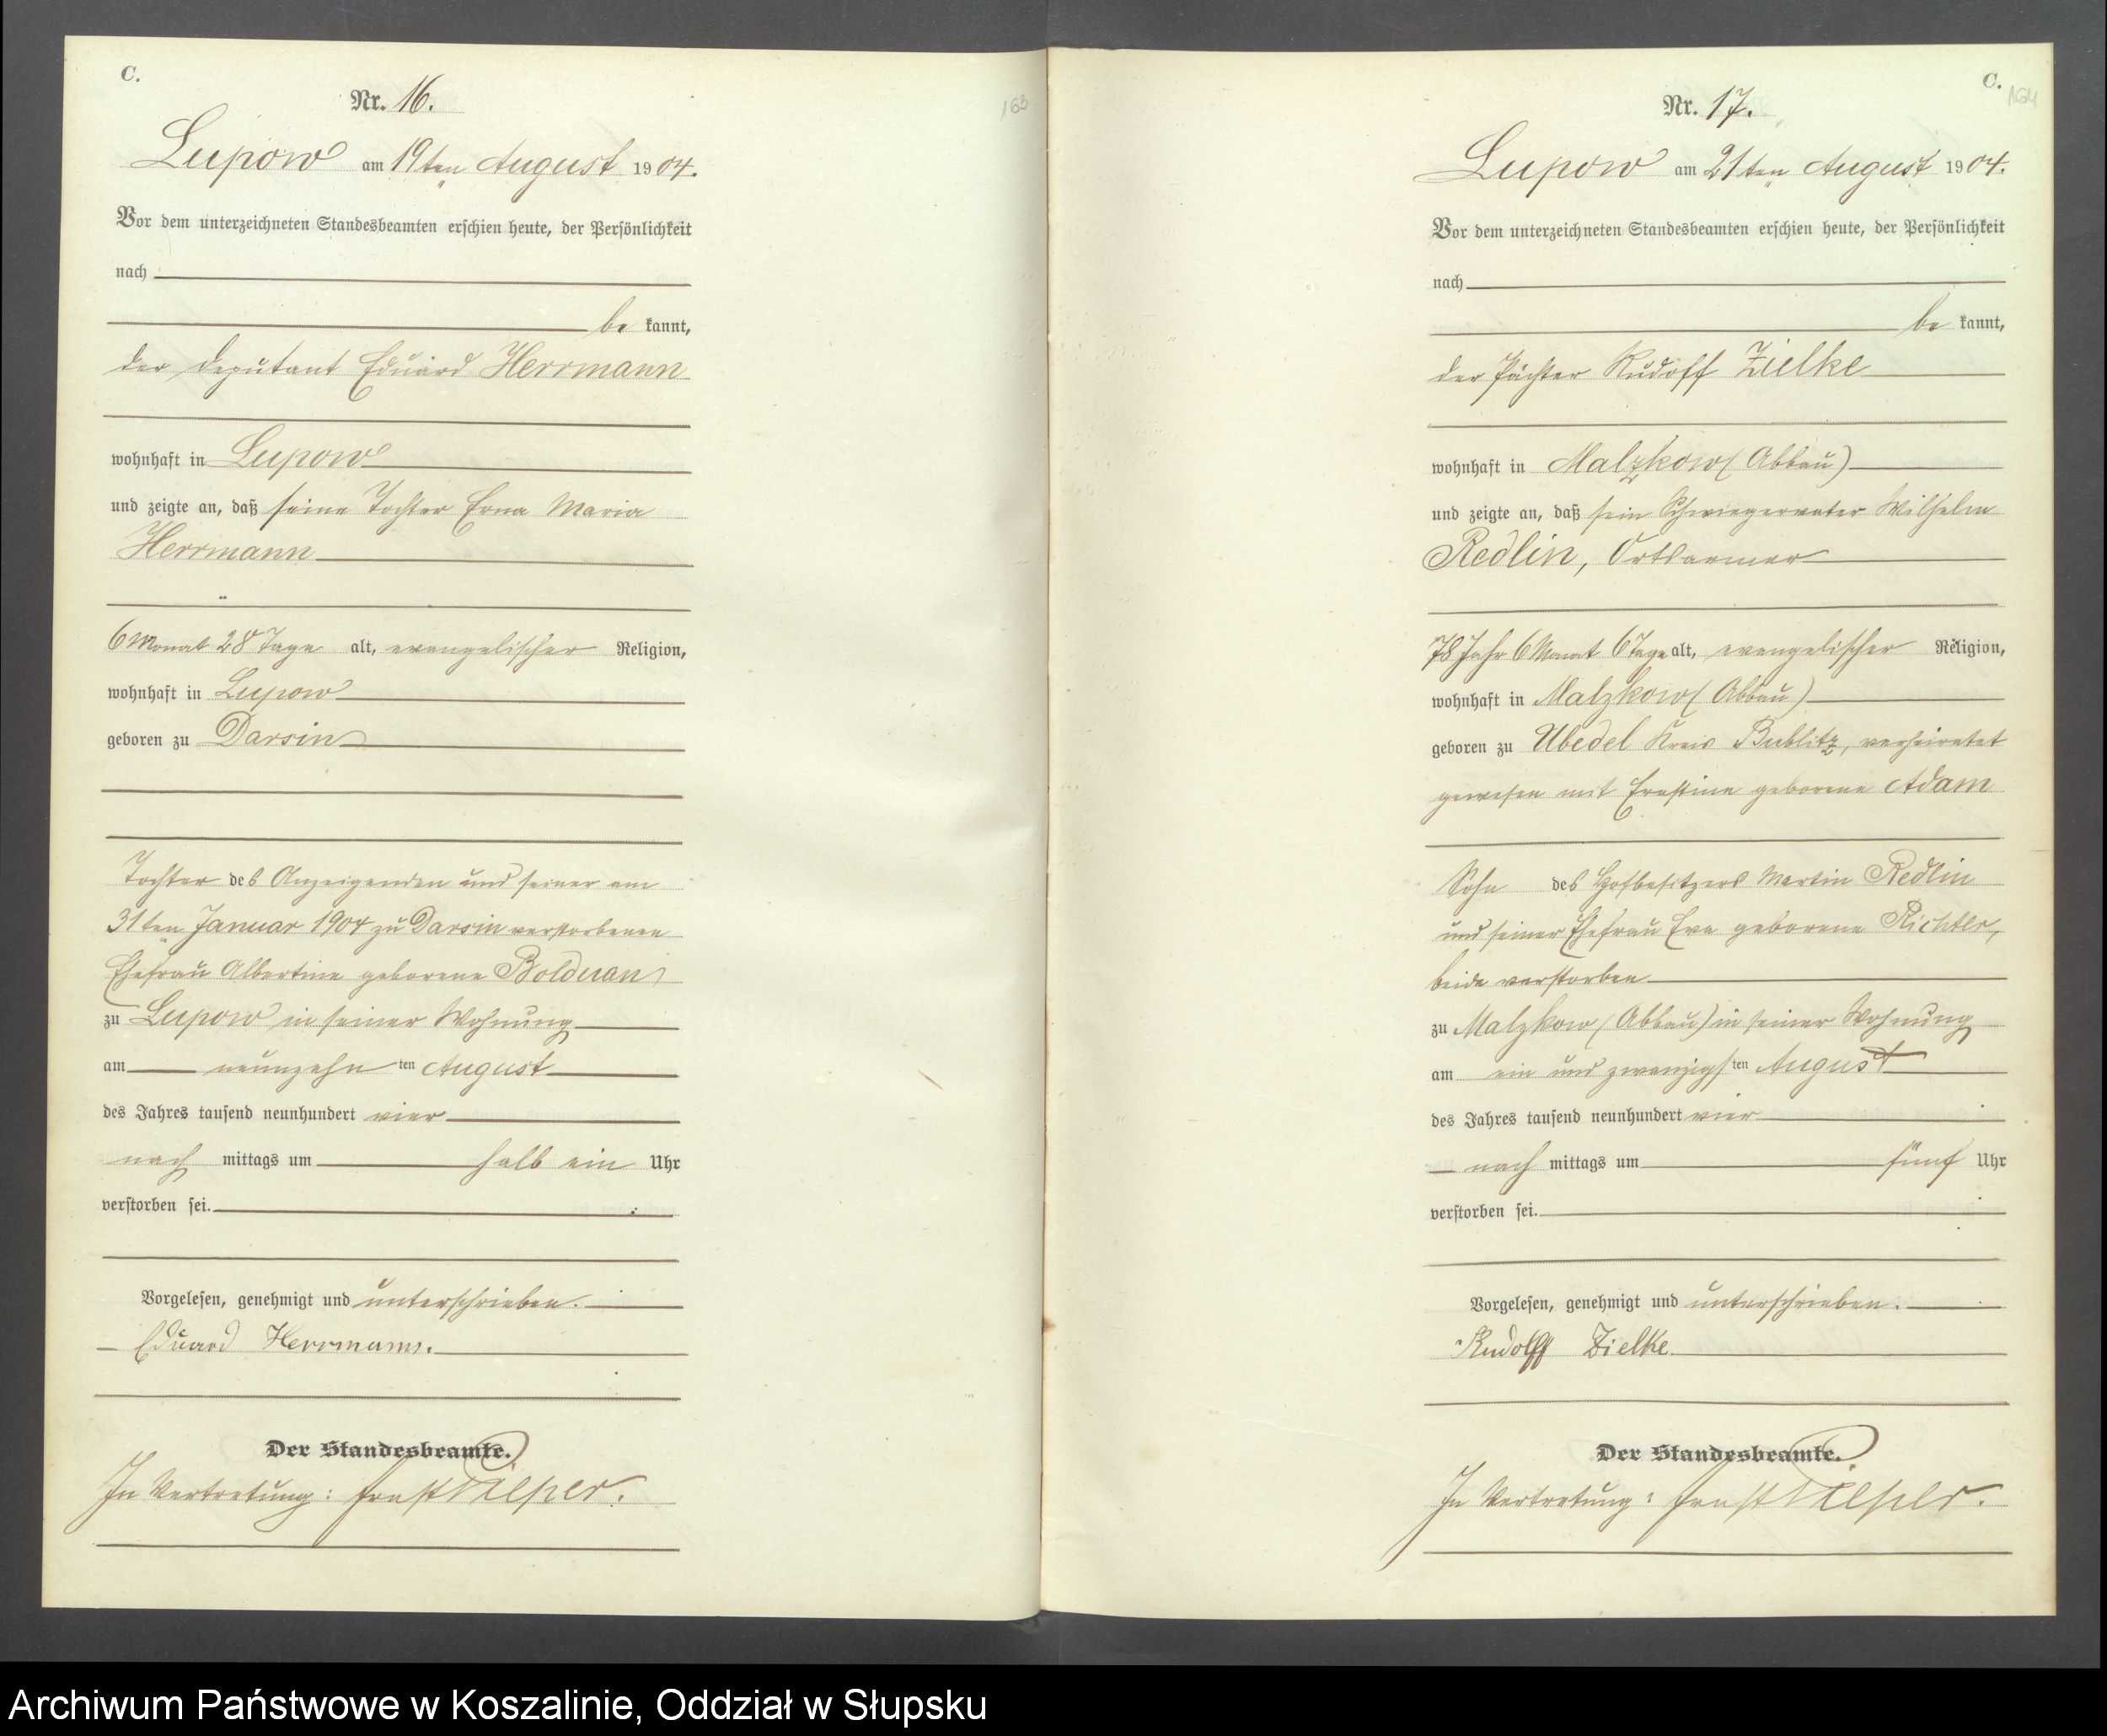 C.
Nr. 16.
163
Lupow am 19ten August 1904.
Vor dem unterzeichneten Standesbeamten erschien heute, der Persönlichkeit
nach
be kannt,
der Deputant Eduard Herrmann
wohnhaft in Lupow
und zeigte an, daß seine Tochter Erna Maria
Herrmann
6 Monat 28 Tage alt, evangelischer Religion,
wohnhaft in Lupow
geboren zu Darsin
Tochter des Anzeigenden und seiner am
31ten Januar 1904 zu Darsin verstorbenen
Ehefrau Albertine geborene Bolduan
zu Lupow in seiner Wohnung
am neunzehn ten August
des Jahres tausend neunhundert vier
nach mittags um halb ein Uhr
verstorben sei.
Vorgelesen, genehmigt und unterschrieben.
Eduard Herrmann.
Der Standesbeamte.
In Vertretung: Ernst
C.
164
Nr. 17.
Lupow am 21ten August 1904.
Vor dem unterzeichneten Standesbeamten erschien heute, der Persönlichkeit
nach
be kannt,
der Pächter Rudolf Zielke
wohnhaft in Malzkow (Abbau)
und zeigte an, daß sein Schwiegervater Wilhelm
Redlin, Ortsarmer
78 Jahr 6 Monat 6 Tage alt, evangelischer Religion,
wohnhaft in Malzkow (Abbau)
geboren zu Ubedel Kreis Bublitz, verheiratet
gewesen mit Ernstine geborene Adam
Sohn des Hofbesitzers Martin Redlin
und seiner Ehefrau Eva geborene Richter,
beide verstorben
zu Malzkow (Abbau) in seiner Wohnung
am ein und zwanzigsten August
des Jahres tausend neunhundert vier
nach mittags um fünf Uhr
verstorben sei.
Vorgelesen, genehmigt und unterschrieben.
Rudolf Zielke
Der Standesbeamte.
In Vertretung: Ernst
Archiwum Państwowe w Koszalinie, Oddział w Słupsku